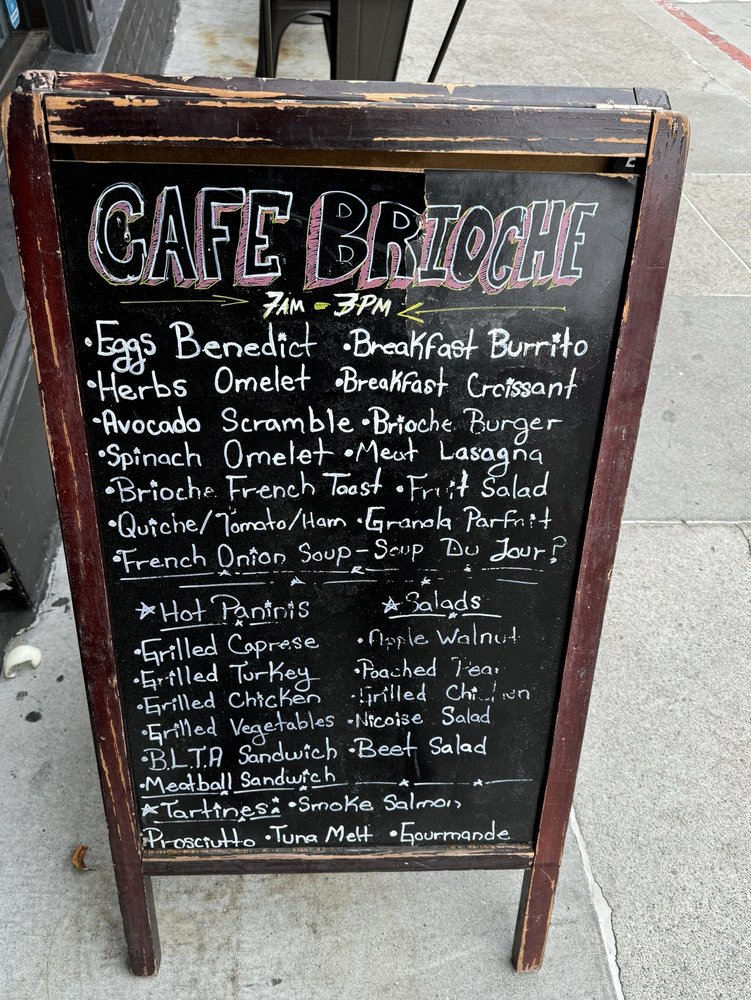 CAFE BRIOCHE
7AM - 3PM
•Eggs Benedict •Breakfast Burrito
•Herbs Omelet •Breakfast Croissant
•Avocado Scramble •Brioche Burger
•Spinach Omelet •Meat Lasagna
•Brioche French Toast •Fruit Salad
•Quiche/Tomato/Ham •Granola Parfait
•French Onion Soup - Soup Du Jour?
☆Hot Paninis
•Grilled Caprese
•Grilled Turkey
•Grilled Chicken
•Grilled Vegetables
•B.L.T.A Sandwich
•Meatball Sandwich
☆Salads
•Apple Walnut
•Poached Pear
•Grilled Chicken
•Nicoise Salad
•Beet Salad
☆Tartines: •Smoke Salmon
Prosciutto •Tuna Melt •Gourmande